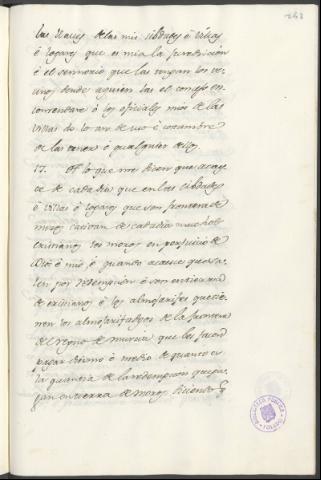 243
las llaves de las mis cibdades é villas
é logares que es mia la juredicion
é el sennorio que las tengan los ve-
cinos donde aquien las el concejo en-
comendare ó los oficiales mios de las
villas do lo an de uso é costumbre
de las tener é qualquier dellos.
17. Et lo que me dicen que acaes-
ce de cada dia que en las cibdades
é villas é logares que son frontera de
moros cativan de cada dia muchos
cristianos los moros en perjuicio de
Dios é mio é quando acaesce que sa-
len por redempcion é son en tierra
de cristianos é los almojarifes que tie-
nen los almojarifadgos de la frontera
del regno de murcia que les facen
pagar diezmo é medio de quanto es
la quantia de la redempcion que pa-
gan en tierra de moros diciendo q̃
BIBLIOTECA PUBLICA
TOLEDO